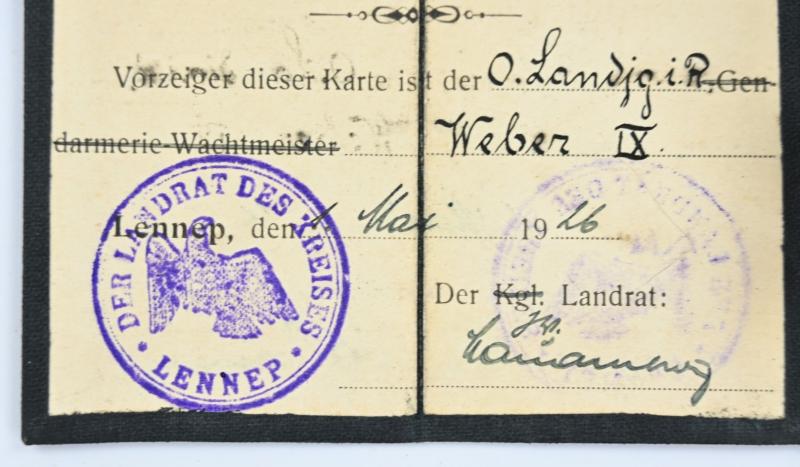 Vorzeiger dieser Karte ist der O. Landjg. i. R., Gen-
darmerie-Wachtmeister Weber IX.
Lennep, den 1. Mai 1926
Der Kgl. Landrat:
J.V.
DER LANDRAT DES KREISES
LENNEP